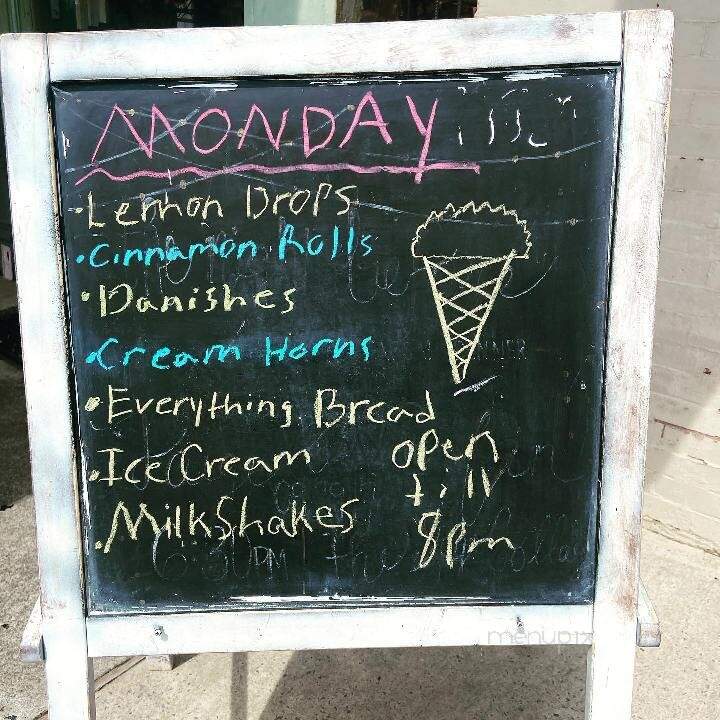 MONDAY
•Lemon Drops
•Cinnamon Rolls
•Danishes
•Cream Horns
•Everything Bread
•Ice Cream
•MilkShakes
open
till
8pm
6:30PM
menupix